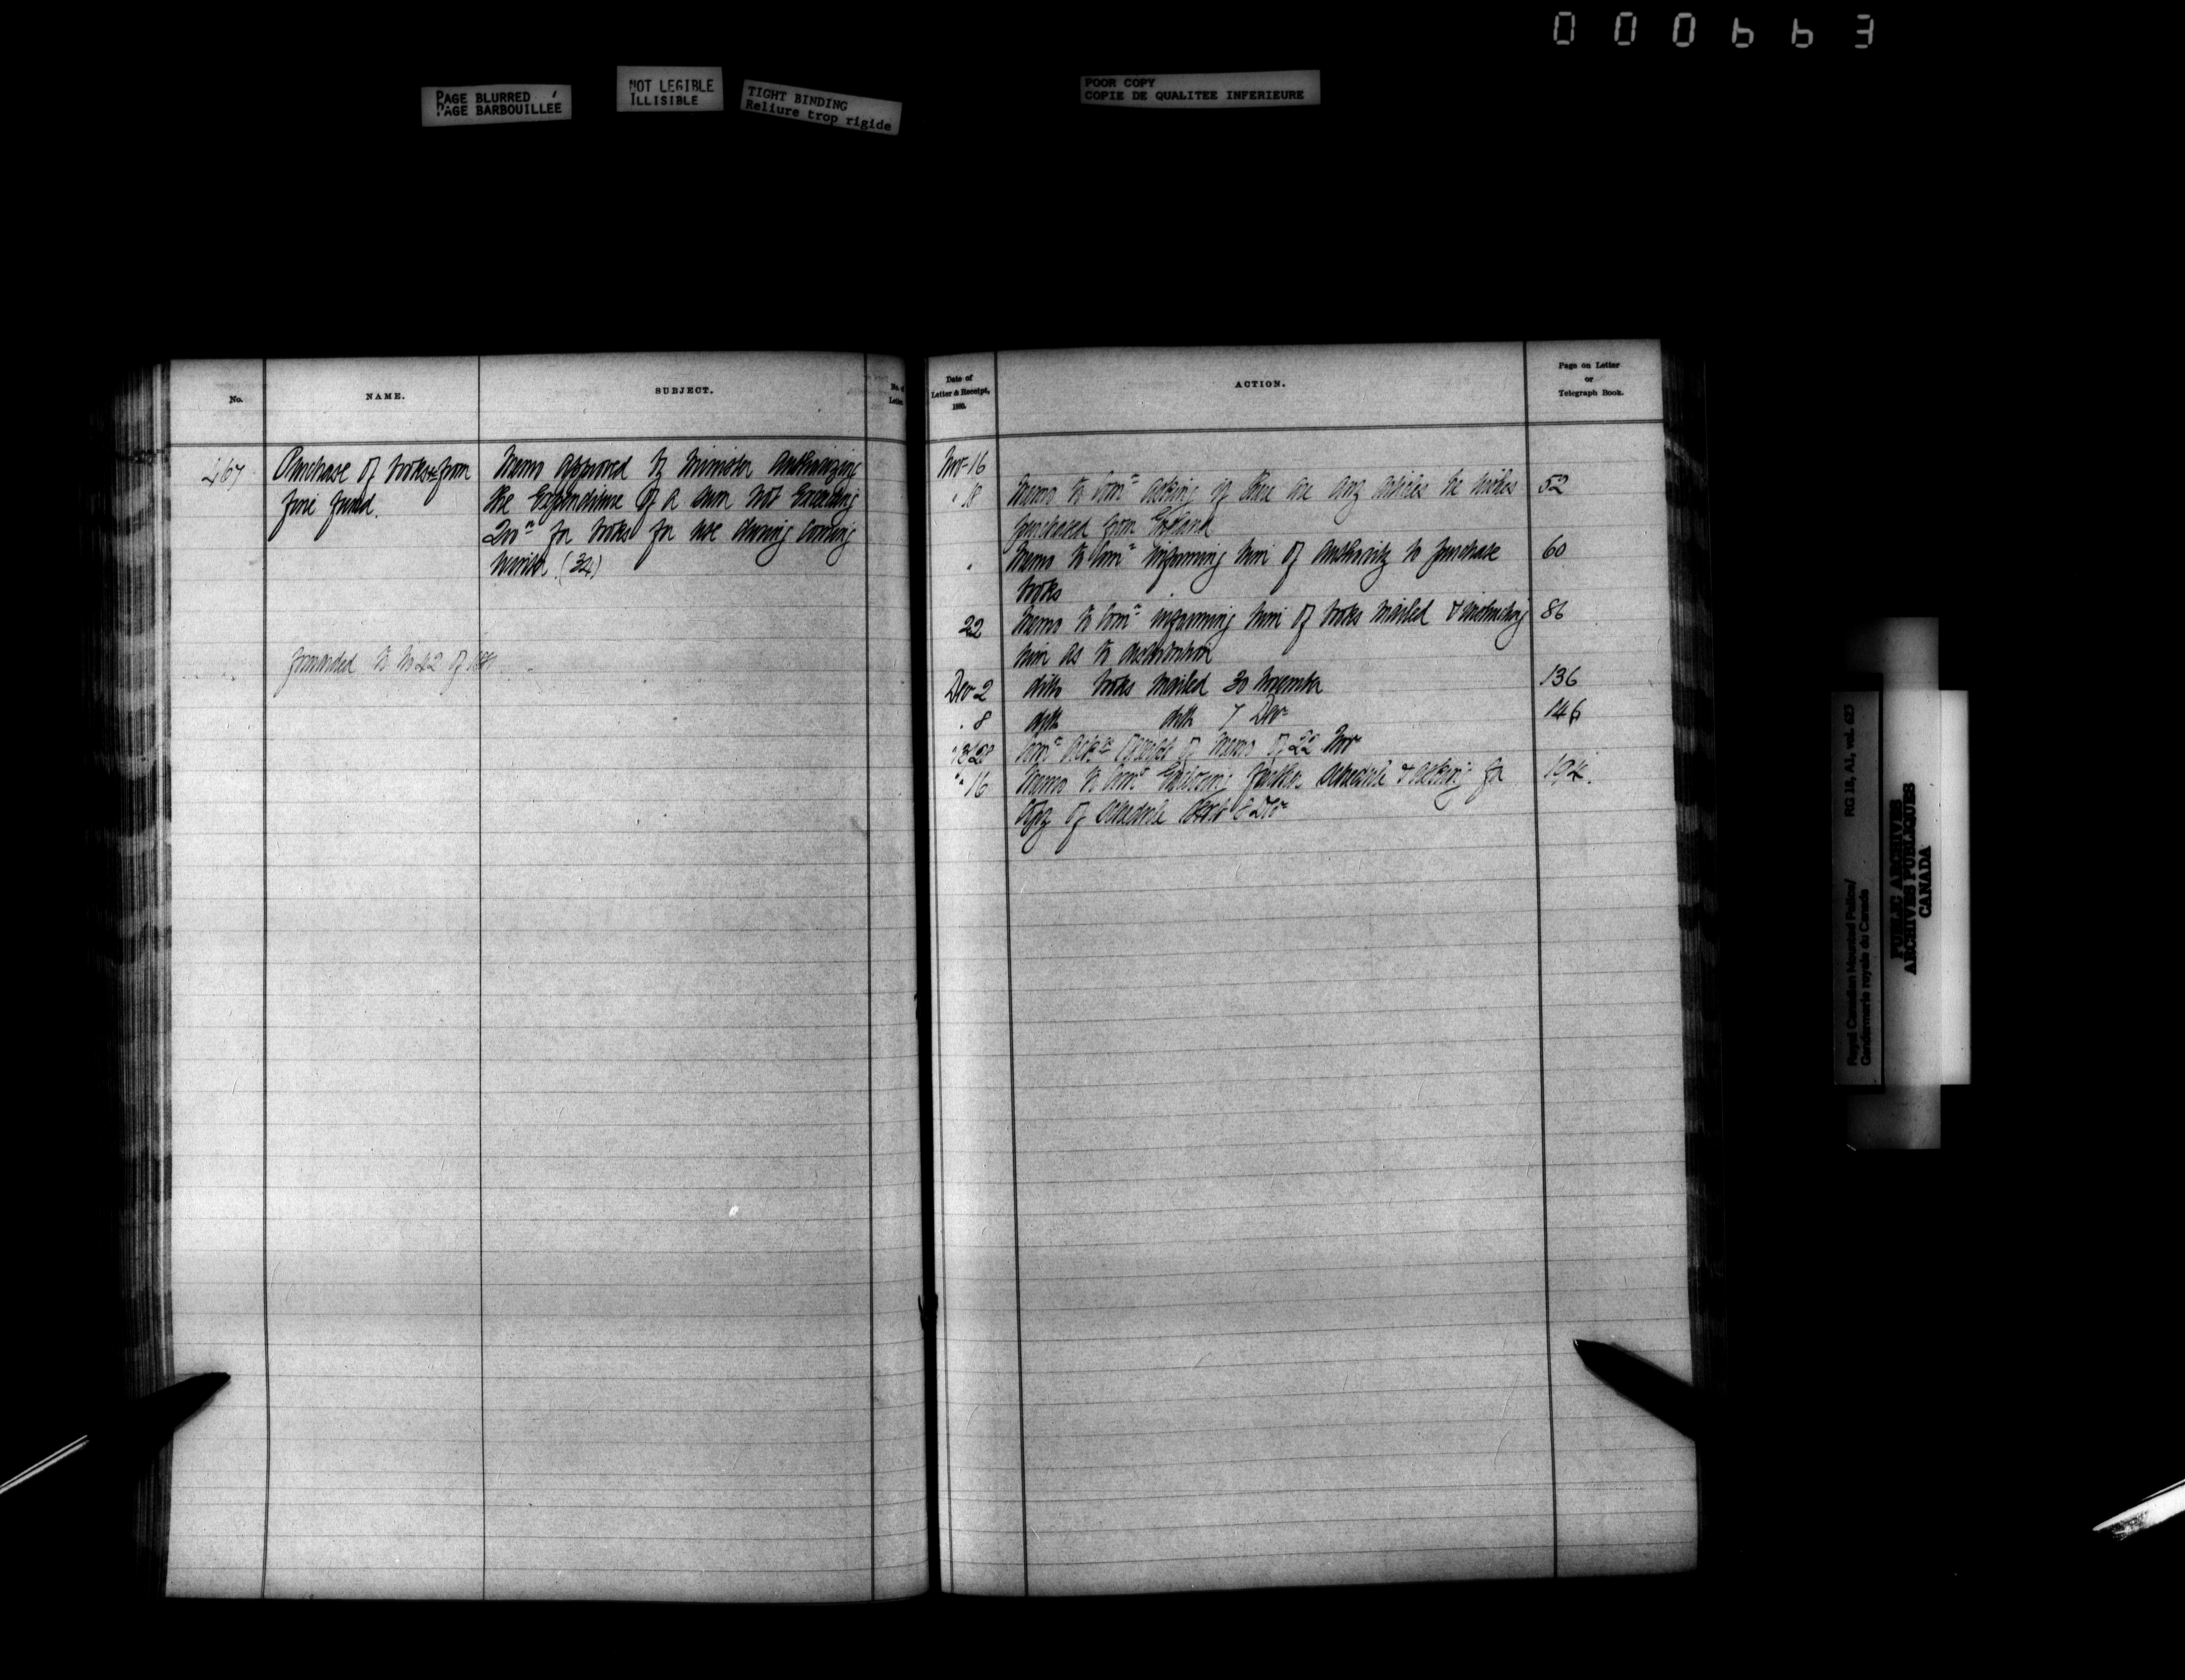 000663
PAGE BLURRED
PAGE BARBOUILLEE
NOT LEGIBLE
ILLISIBLE
TIGHT BINDING
Reliure trop rigide
POOR COPY
COPIE DE QUALITEE INFERIEURE
No.
NAME.
SUBJECT.
No. of
Letter
467
Purchase of books &c from
fine fund.
Memo approved by Minister authorizing
the Expenditure of a sum not Exceeding
200 for books for use during coming
winter (34)
forwarded to No 42 of
Date of
Letter & Receipt,
1880.
ACTION.
Page on Letter
or
Telegraph Book.
Nov 16
" 18 Memo to Comr asking if there are any articles he wishes 52
purchased from England
" Memo to Comr informing him of authority to purchase 60
books
22 Memo to Comr informing him of books mailed & instructing 86
him as to distribution
Dec 2 ditto books mailed 30 November 136
" 8 ditto ditto 7 Decr 146
Comr ackn receipt of memo of 22 Nov
" 16 Memo to Comr Enclosing further schedule & asking for
copy of schedule 8 Dec
Royal Canadian Mounted Police/
Gendarmerie royale du Canada
RG 18, A1, vol. 623
PUBLIC ARCHIVES
ARCHIVES PUBLIQUES
CANADA